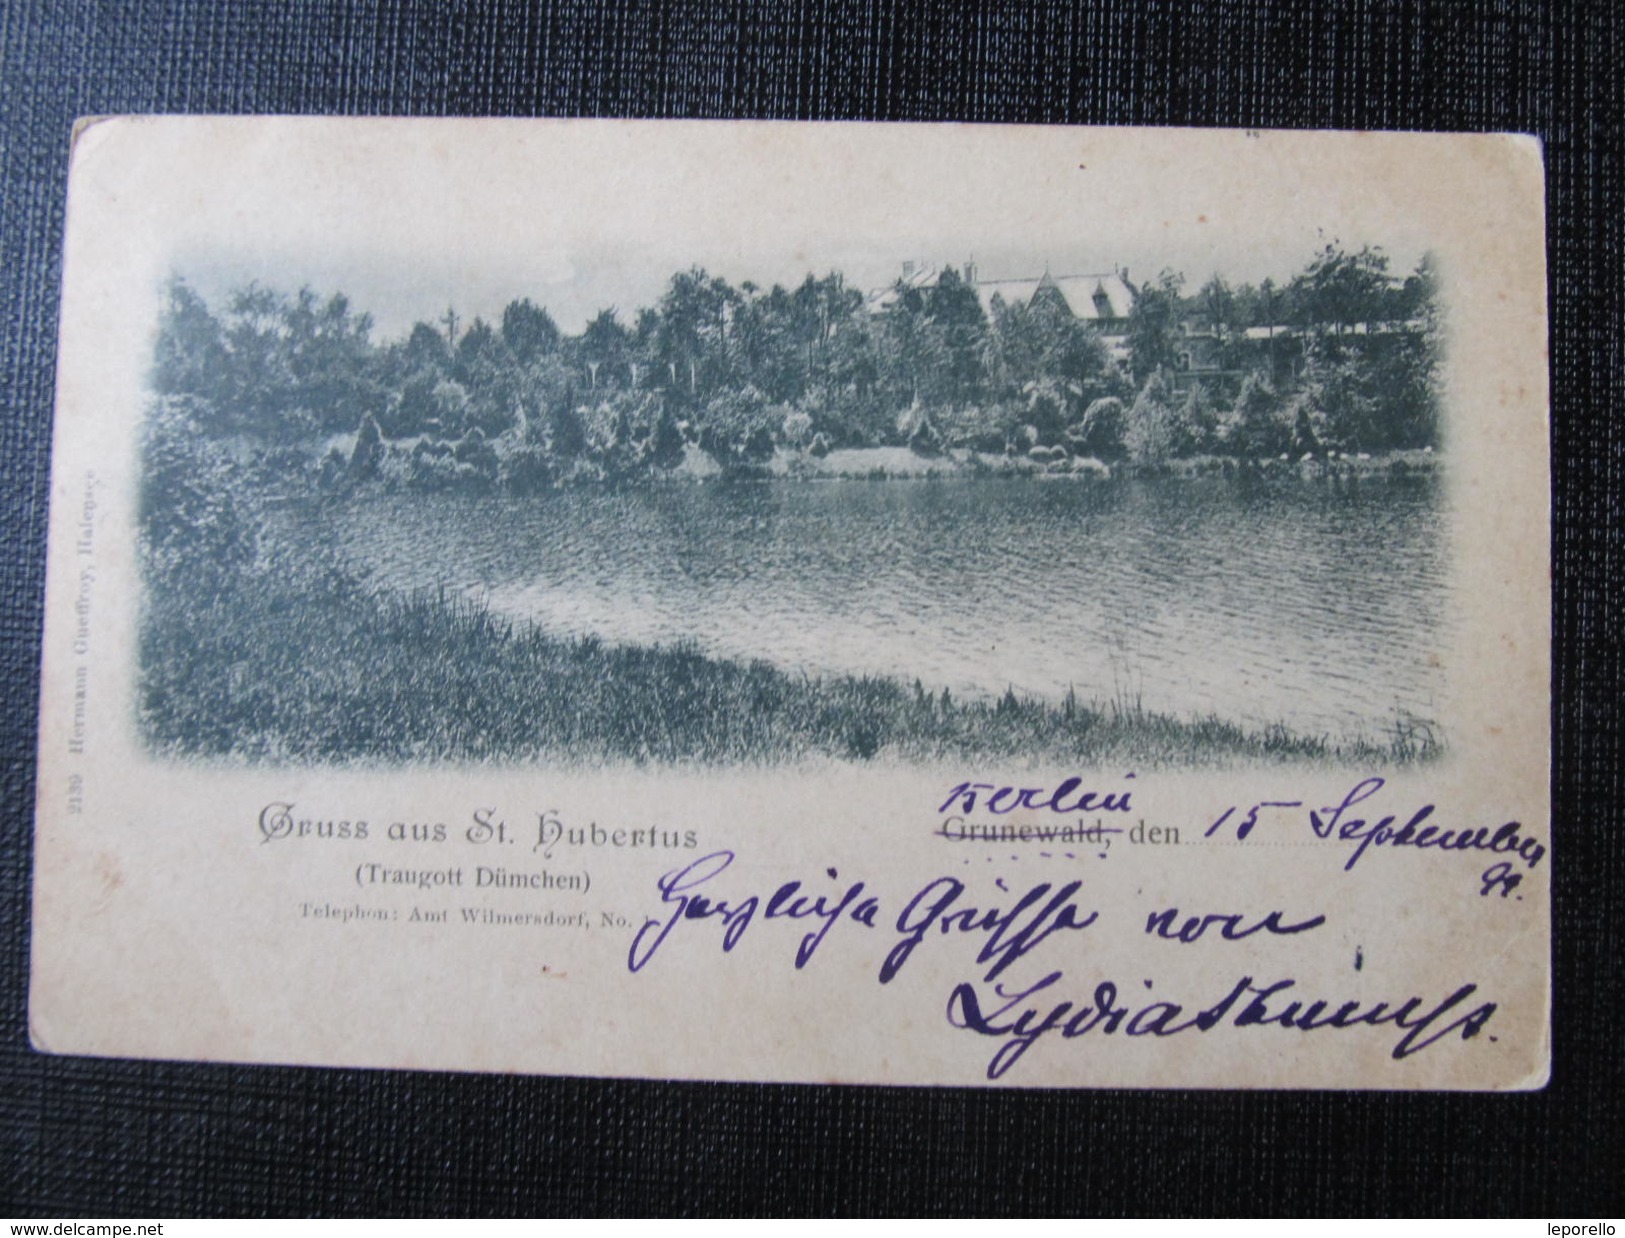 2139 Hermann Gueffroy, Halensee
Gruss aus St. Hubertus
(Traugott Dümchen)
Telephon: Amt Wilmersdorf, No.
Berlin
Grunewald, den 15 September
99.
Herzliche Grüsse von
Lydia
www.delcampe.net
leporello